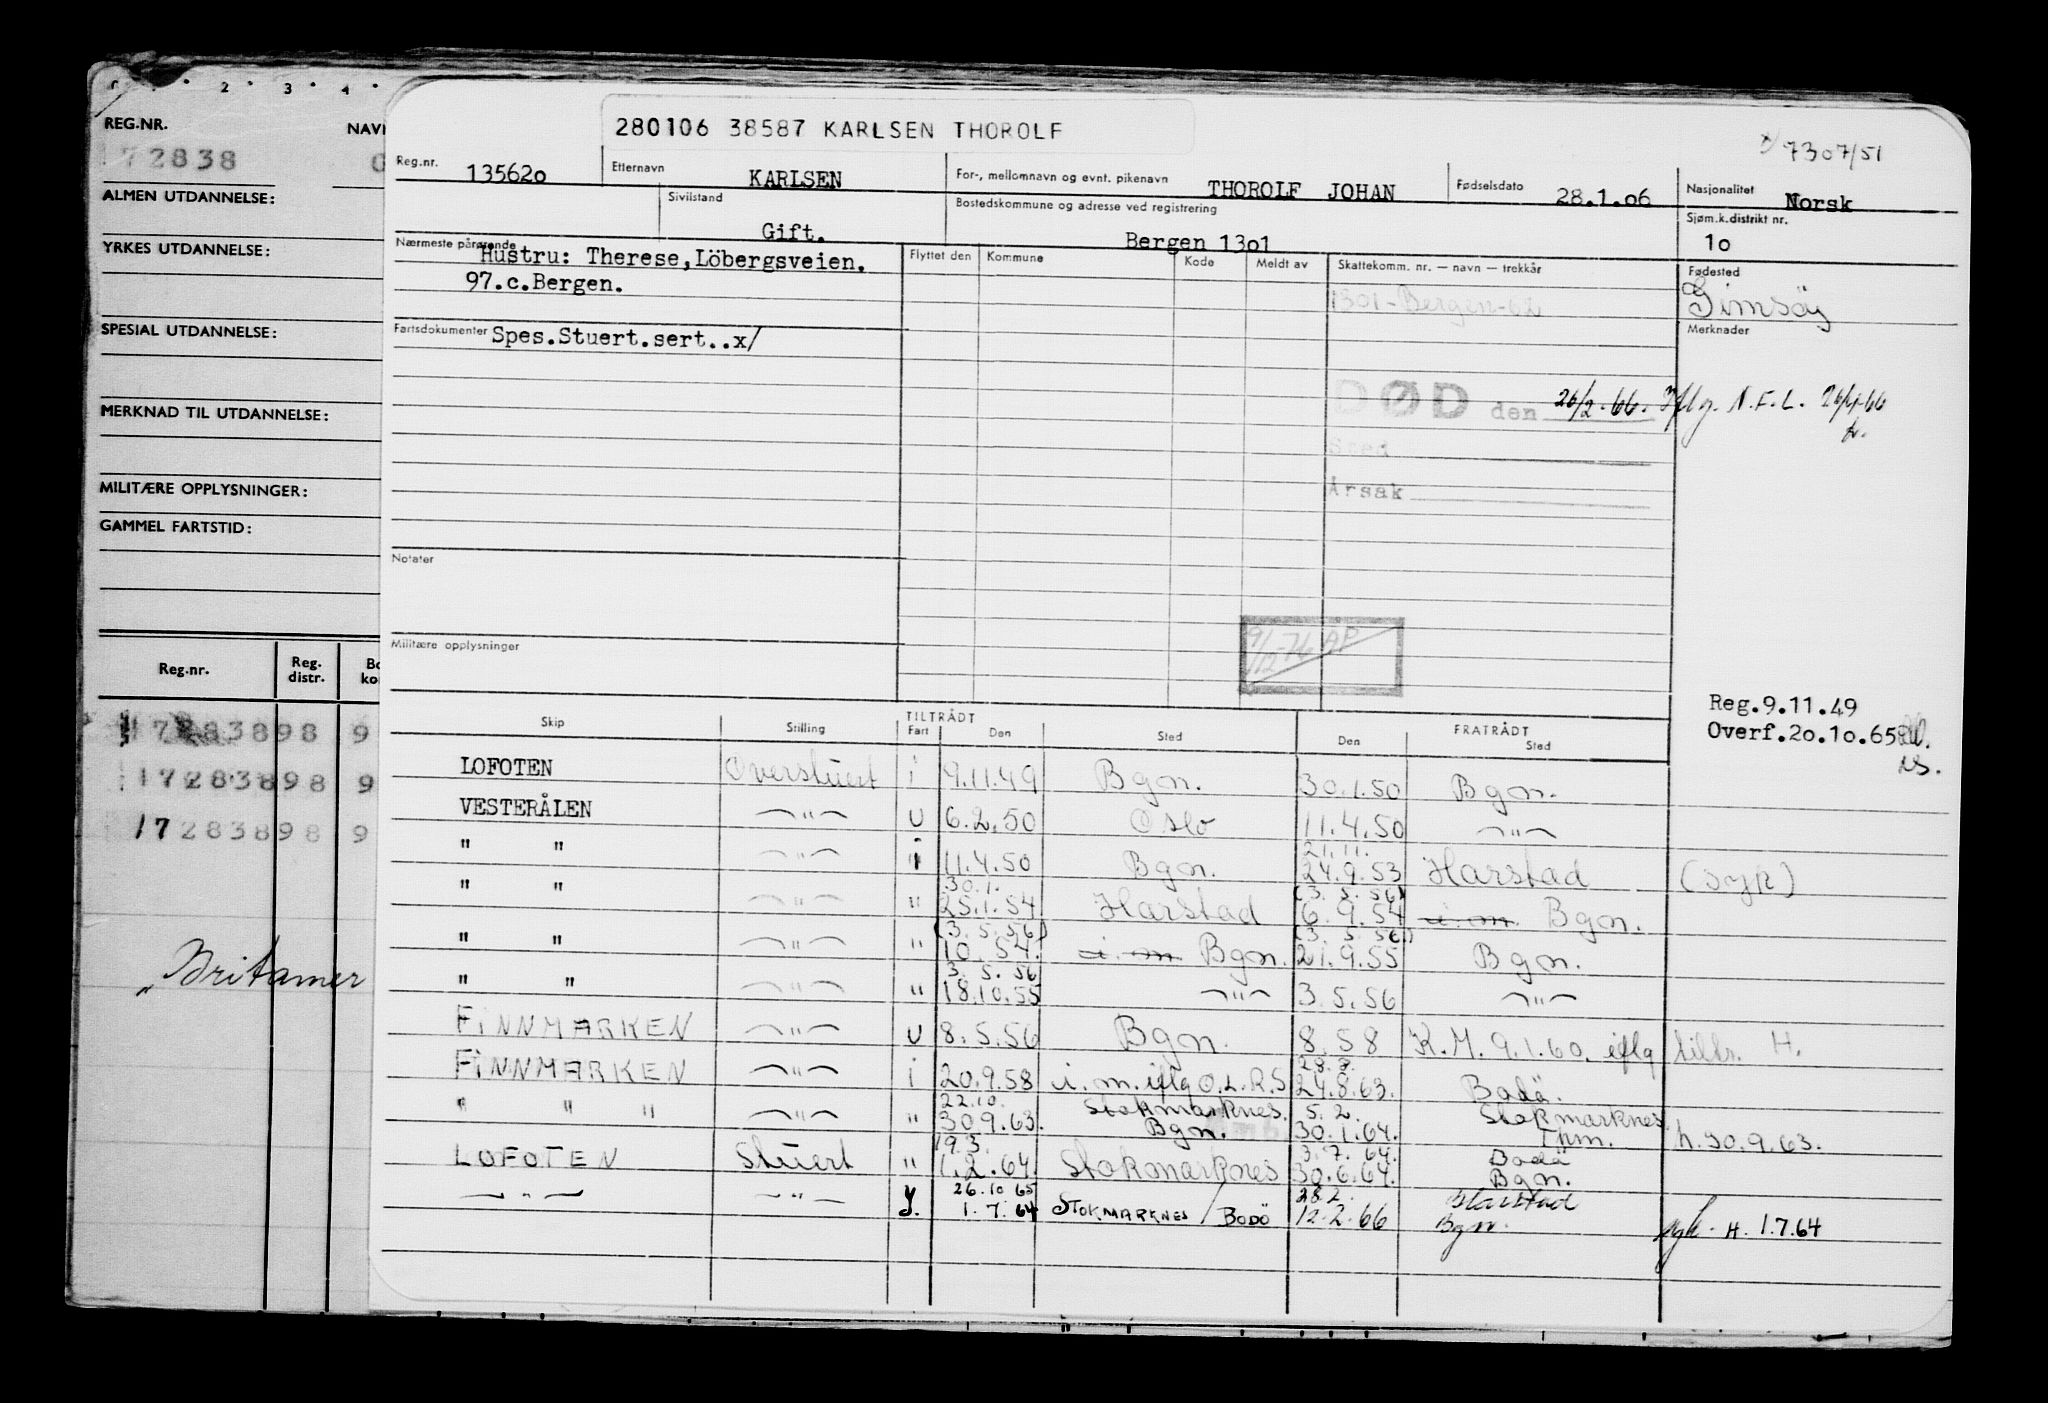 2 3 4
REG.NR. NAV
172838
ALMEN UTDANNELSE:
YRKES UTDANNELSE:
SPESIAL UTDANNELSE:
MERKNAD TIL UTDANNELSE:
MILITÆRE OPPLYSNINGER:
GAMMEL FARTSTID:
Reg.nr. Reg. distr. Bo ko
17283898 9
17283898 9
17283898 9
"Britamer
280106 38587 KARLSEN THOROLF
x/ 7307/51
Reg.nr. 135620 Etternavn KARLSEN For-, mellomnavn og evnt. pikenavn THOROLF JOHAN Fødselsdato 28.1.06 Nasjonalitet Norsk
Sivilstand Gift. Bostedskommune og adresse ved registrering Bergen 1301 Sjøm.k.distrikt nr. 10
Nærmeste pårørende Hustru: Therese, Löbergsveien.
97.c.Bergen.
Flyttet den Kommune Kode Meldt av Skattekomm. nr. — navn — trekkår Fødested
1301-Bergen-62 Gimsöy
Fartsdokumenter Spes.Stuert.sert..x/
Merknader
DØD den 26/2-66. Iflg. N.F.L.
Sted
Årsak
Notater
9/12-76 AP
Militære opplysninger
Reg.9.11.49
Overf.20.10.65
Skip Stilling TILTRÅDT Fart Den Sted FRATRÅDT Den Sted
LOFOTEN Overstuert i 9.11.49 Bgn. 30.1.50 Bgn.
VESTERÅLEN —"— u 6.2.50 Oslo 11.4.50 —"—
" " —"— i 11.4.50 Bgn. 21.11. 24.9.53 Harstad (syk)
" " —"— " 30.1. 25.1.54 Harstad (3.5.56) 6.9.54 i.m. Bgn.
" " —"— " (3.5.56) 10.54. i.m. Bgn. (3.5.56) 21.9.55 Bgn.
" " —"— " 3.5.56 18.10.55 —"— 3.5.56 —"—
FINNMARKEN —"— u 8.5.56 Bgn. 8.58 K.M. 9.1.60. iflg tiltr. H.
FINNMARKEN —"— i 20.9.58 i.m. iflg O.L.R.S 28.8. 24.8.63. Bodö.
" " " —"— " 22.10. 30.9.63. Stokmarknes. Bgn. 5.2. 30.1.64. Stokmarknes. Thm. h.30.9.63.
LOFOTEN Stuert " 19.3. 1.2.64. Stokmarknes 3.7.64. 30.6.64. Bodö Bgn.
—"— —"— y. 26.10.65 1.7.64 STOKMARKNES / BODÖ 28.2. 12.2.66 Harstad Bgn. syk. H. 1.7.64